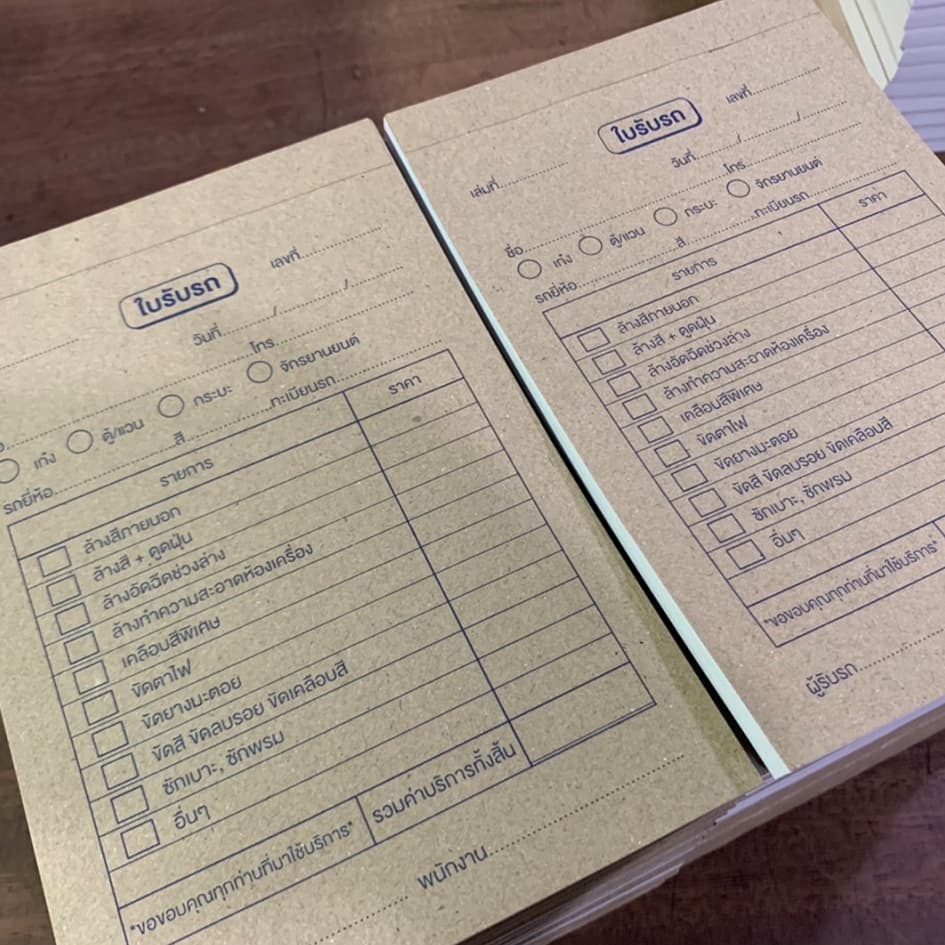 ใบรับรถ
เลขที่
วันที่ / /
โทร
เก๋ง ตู้/แวน กระบะ จักรยานยนต์
รถยี่ห้อ สี ทะเบียนรถ
รายการ ราคา
ล้างสีภายนอก
ล้างสี + ดูดฝุ่น
ล้างอัดฉีดช่วงล่าง
ล้างทำความสะอาดห้องเครื่อง
เคลือบสีพิเศษ
ขัดตาไฟ
ขัดยางมะตอย
ขัดสี ขัดลบรอย ขัดเคลือบสี
ซักเบาะ, ซักพรม
อื่นๆ
*ขอขอบคุณทุกท่านที่มาใช้บริการ* รวมค่าบริการทั้งสิ้น
พนักงาน
ใบรับรถ
เล่มที่ เลขที่
วันที่ / /
ชื่อ โทร
เก๋ง ตู้/แวน กระบะ จักรยานยนต์
รถยี่ห้อ สี ทะเบียนรถ
รายการ ราคา
ล้างสีภายนอก
ล้างสี + ดูดฝุ่น
ล้างอัดฉีดช่วงล่าง
ล้างทำความสะอาดห้องเครื่อง
เคลือบสีพิเศษ
ขัดตาไฟ
ขัดยางมะตอย
ขัดสี ขัดลบรอย ขัดเคลือบสี
ซักเบาะ, ซักพรม
อื่นๆ
*ขอขอบคุณทุกท่านที่มาใช้บริการ*
ผู้รับรถ